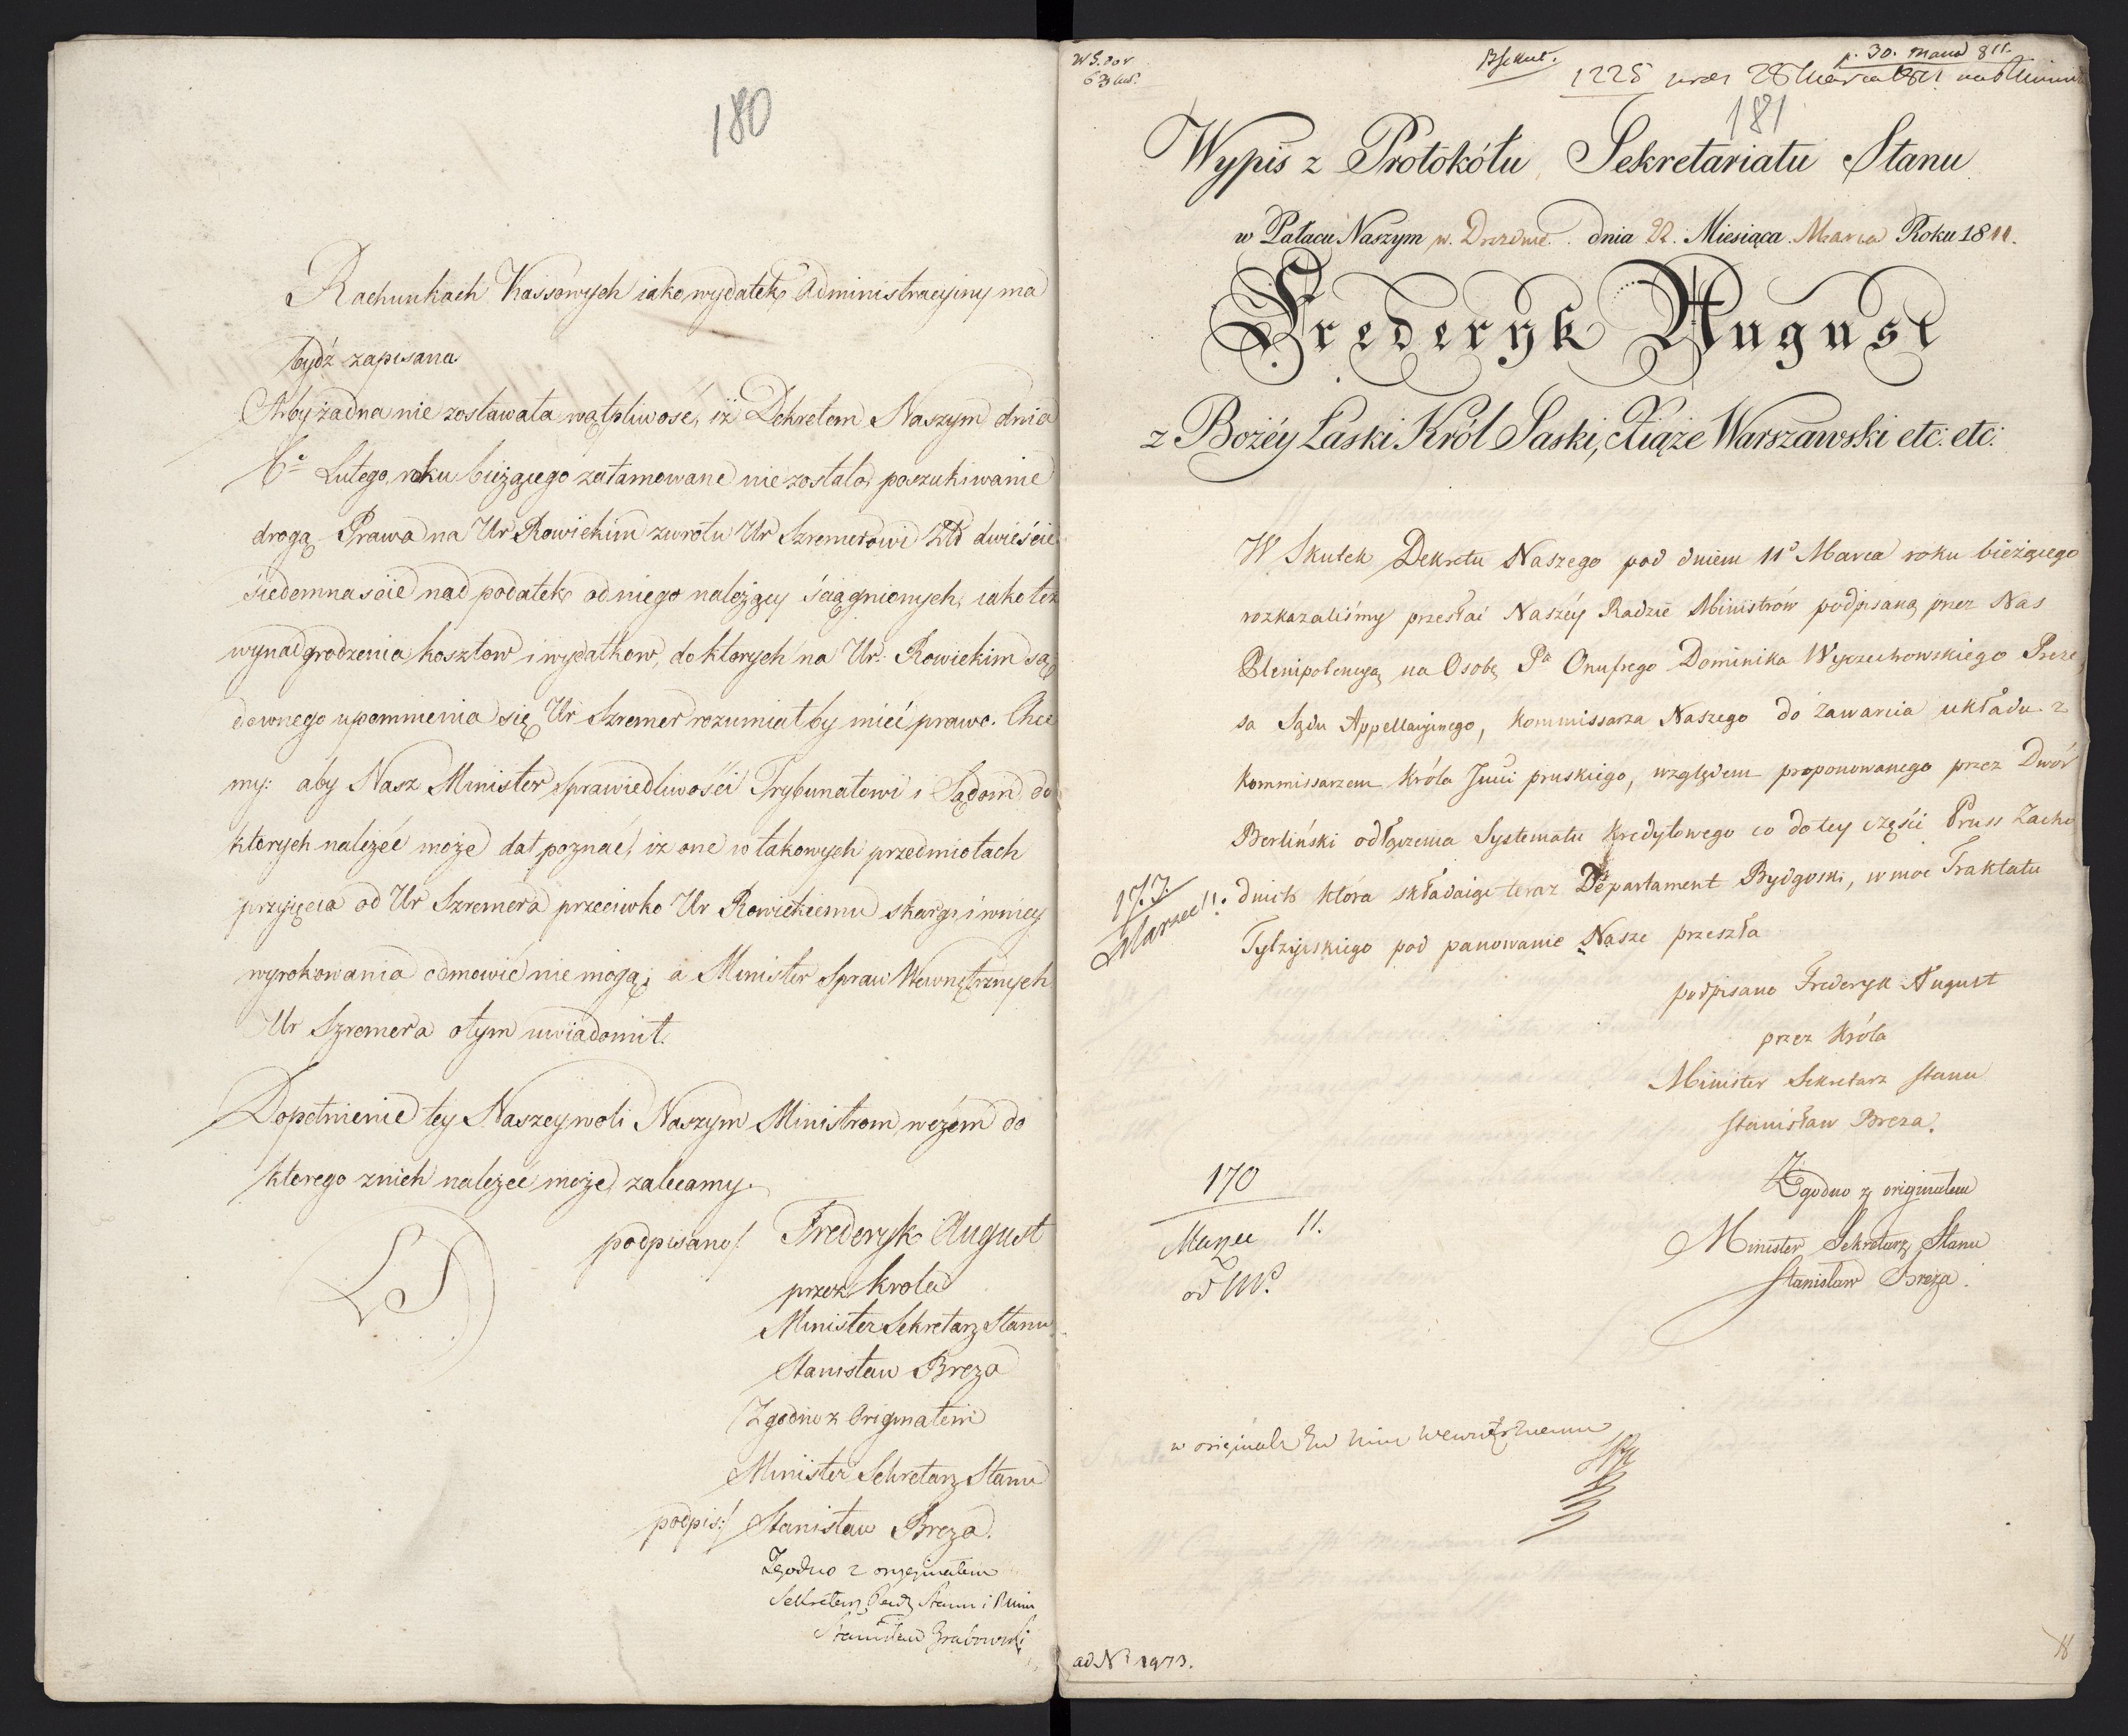 180
Rachunkach Kassowych iako wydatek Administracyiny ma
bydź zapisana
Aby żadna nie zostawała wątpliwość, iż Dekretem Naszym dnia
6º Lutego roku bieżącego zatamowane nie zostało poszukiwanie
drogą Prawa na Ur Rowickim zwrotu Ur Szremerowi Złł dwieście
siedemnaście nad podatek od niego należący ściągnionych, iako też
wynadgrodzenia kosztow i wydatkow, do ktorych na Ur. Rowickim są
downego upomnienia się Ur Szremer rozumiał by mieć prawo. Chce
my: aby Nasz Minister Sprawiedliwości Trybunałowi i Sądom do
ktorych należeć może dał poznać, iż one w takowych przedmiotach
przyięcia od Ur Szremera przeciwko Ur Rowickiemu skargi i w niey
wyrokowania odmowić nie mogą; a Minister Spraw Wewnętrznych
Ur Szremera o tym uwiadomił.
Dopełnienie tey Naszey woli Naszym Ministrom, w czém do
ktorego z nich należeć może, zalecamy.
LS
podpisano/ Frederyk August
przez krola
Minister Sekretarz Stanu
Stanisław Breza
Zgodno z Originałem
Minister Sekretarz Stanu
podpis:/ Stanisław Breza.
Zgodno z oryginałem
Sekretarz Rady Stanu i Min
Stanisław Grabowski
p. 30. Marca 811.
1225 28 Marca 1811
181
Wypis z Protokółu Sekretariatu Stanu
w Pałacu Naszym w. Dreznie. dnia 22. Miesiąca Marca Roku 1811.
Frederyk August
z Bożéy Łaski Król Saski, Xiąże Warszawski etc: etc:
W Skutek Dekretu Naszego pod dniem 11º Marca roku bieżącego
rozkazaliśmy przesłać Naszéy Radzie Ministrów podpisaną przez Nas
Plenipotencyą na Osobę Pa Onufrego Dominika Wyczechowskiego Preze
sa Sądu Appellacyinego, Kommissarza Naszego do zawarcia układu z
Kommissarzem Króla Jmci pruskiego, względem proponowanego przez Dwór
Berliński odłączenia Systematu Kredytowego co do tey części Pruss Zacho
dnich która składaiąc teraz Departament Bydgoski, w moc Traktatu
Tylżyckiego pod panowanie Nasze przeszła
173.
Marzec 11.
podpisano Frederyk August
przez Króla
Minister Sekretarz Stanu
Stanisław Breza.
170
Marzec 11.
Zgodno z originałem
Minister Sekretarz Stanu
Stanisław Breza.
w originale
ad Nº 1973.